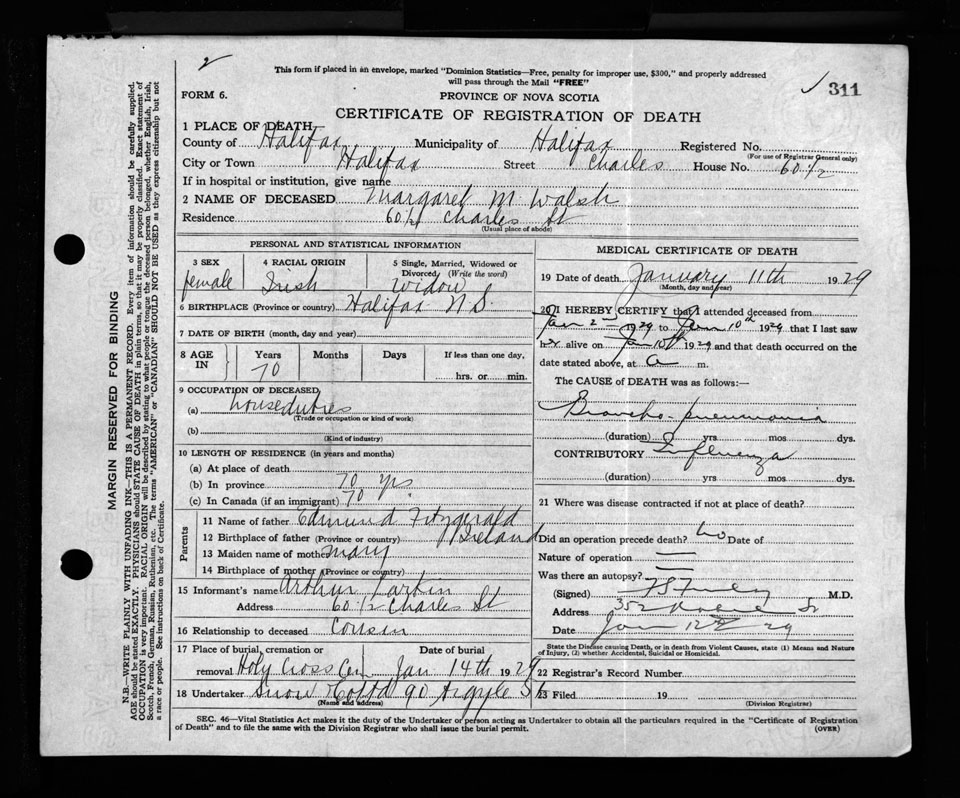 2
This form if placed in an envelope, marked "Dominion Statistics—Free, penalty for improper use, $300," and properly addressed
will pass through the Mail "FREE"
311
FORM 6.
PROVINCE OF NOVA SCOTIA
CERTIFICATE OF REGISTRATION OF DEATH
1 PLACE OF DEATH—
County of Halifax Municipality of Halifax Registered No.
(For use of Registrar General only)
City or Town Halifax Street Charles House No. 60 1/2
If in hospital or institution, give name
2 NAME OF DECEASED Margaret M. Walsh
Residence 60 1/2 Charles St
(Usual place of abode)
PERSONAL AND STATISTICAL INFORMATION
3 SEX 4 RACIAL ORIGIN 5 Single, Married, Widowed or
Divorced (Write the word)
female Irish Widow
6 BIRTHPLACE (Province or country) Halifax N.S.
7 DATE OF BIRTH (month, day and year)
8 AGE IN Years Months Days If less than one day,
70 hrs. or min.
9 OCCUPATION OF DECEASED
(a) houseduties
(Trade or occupation or kind of work)
(b)
(Kind of industry)
10 LENGTH OF RESIDENCE (in years and months)
(a) At place of death
(b) In province 70 yrs
(c) In Canada (if an immigrant) 70
Parents
11 Name of father Edmund Fitzgerald
12 Birthplace of father (Province or country) Ireland
13 Maiden name of mother Mary
14 Birthplace of mother (Province or country)
15 Informant's name Arthur Larkin
Address 60 1/2 Charles St
16 Relationship to deceased Cousin
17 Place of burial, cremation or Date of burial
removal Holy Cross Cem Jan 14th 1929
18 Undertaker Snow & Co Ltd 90 Argyle St
(Name and address)
MEDICAL CERTIFICATE OF DEATH
19 Date of death January 11th 1929
(Month, day and year)
20 I HEREBY CERTIFY that I attended deceased from
Jan 2nd 1929 to Jan 10th 1929 that I last saw
her alive on Jan 10th 1929 and that death occurred on the
date stated above, at a m.
The CAUSE OF DEATH was as follows:—
Broncho-pneumonia
(duration) yrs mos dys.
CONTRIBUTORY Influenza
(duration) yrs. mos. dys.
21 Where was disease contracted if not at place of death?
Did an operation precede death? No Date of
Nature of operation —
Was there an autopsy? —
(Signed) M.D.
Address 352 St
Date Jan 12th 29
State the Disease causing Death, or in death from Violent Causes, state (1) Means and Nature
of Injury, (2) whether Accidental, Suicidal or Homicidal.
22 Registrar's Record Number
23 Filed 19
(Division Registrar)
SEC. 46—Vital Statistics Act makes it the duty of the Undertaker or person acting as Undertaker to obtain all the particulars required in the "Certificate of Registration
of Death" and to file the same with the Division Registrar who shall issue the burial permit.
(OVER)
MARGIN RESERVED FOR BINDING
N.B.—WRITE PLAINLY WITH UNFADING INK—THIS IS A PERMANENT RECORD. Every item of information should be carefully supplied.
AGE should be stated EXACTLY. PHYSICIANS should STATE CAUSE OF DEATH in plain terms, so that it may be properly classified. Exact statement of
OCCUPATION is very important. RACIAL ORIGIN will be described by stating to what people or tongue the deceased person belonged, whether English, Irish,
Scotch, French, German, Russian, Ruthenian, etc. The terms "AMERICAN" or "CANADIAN" SHOULD NOT BE USED as they express citizenship but not
a race or people. See instructions on back of Certificate.